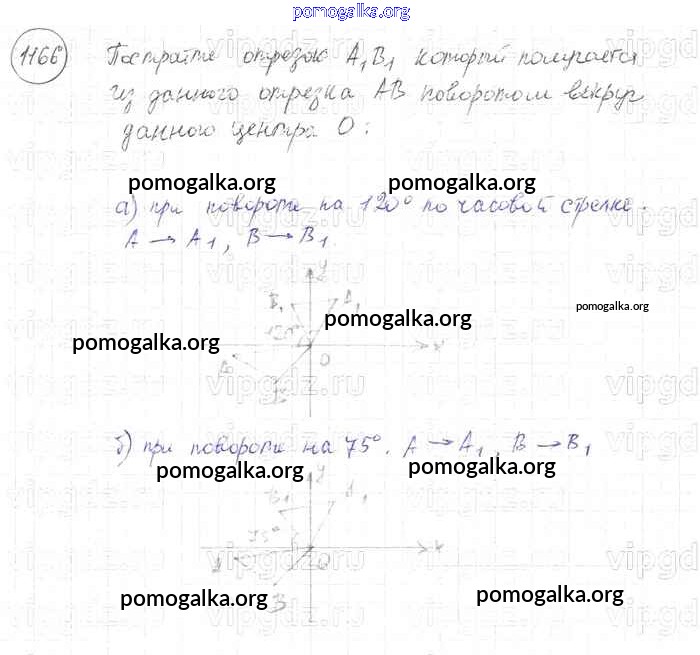 pomogalka.org
1166 Постройте отрезок A₁B₁ который получается
из данного отрезка AB поворотом вокруг
данного центра O:
pomogalka.org pomogalka.org
а) при повороте на 120° по часовой стрелке.
A → A₁, B → B₁.
y
B₁ A₁
pomogalka.org
pomogalka.org
120°
pomogalka.org
x
O
A
B
vipgdz.ru
б) при повороте на 75°. A → A₁, B → B₁
pomogalka.org pomogalka.org
y
B₁ A₁
75°
x
A O
B
pomogalka.org pomogalka.org